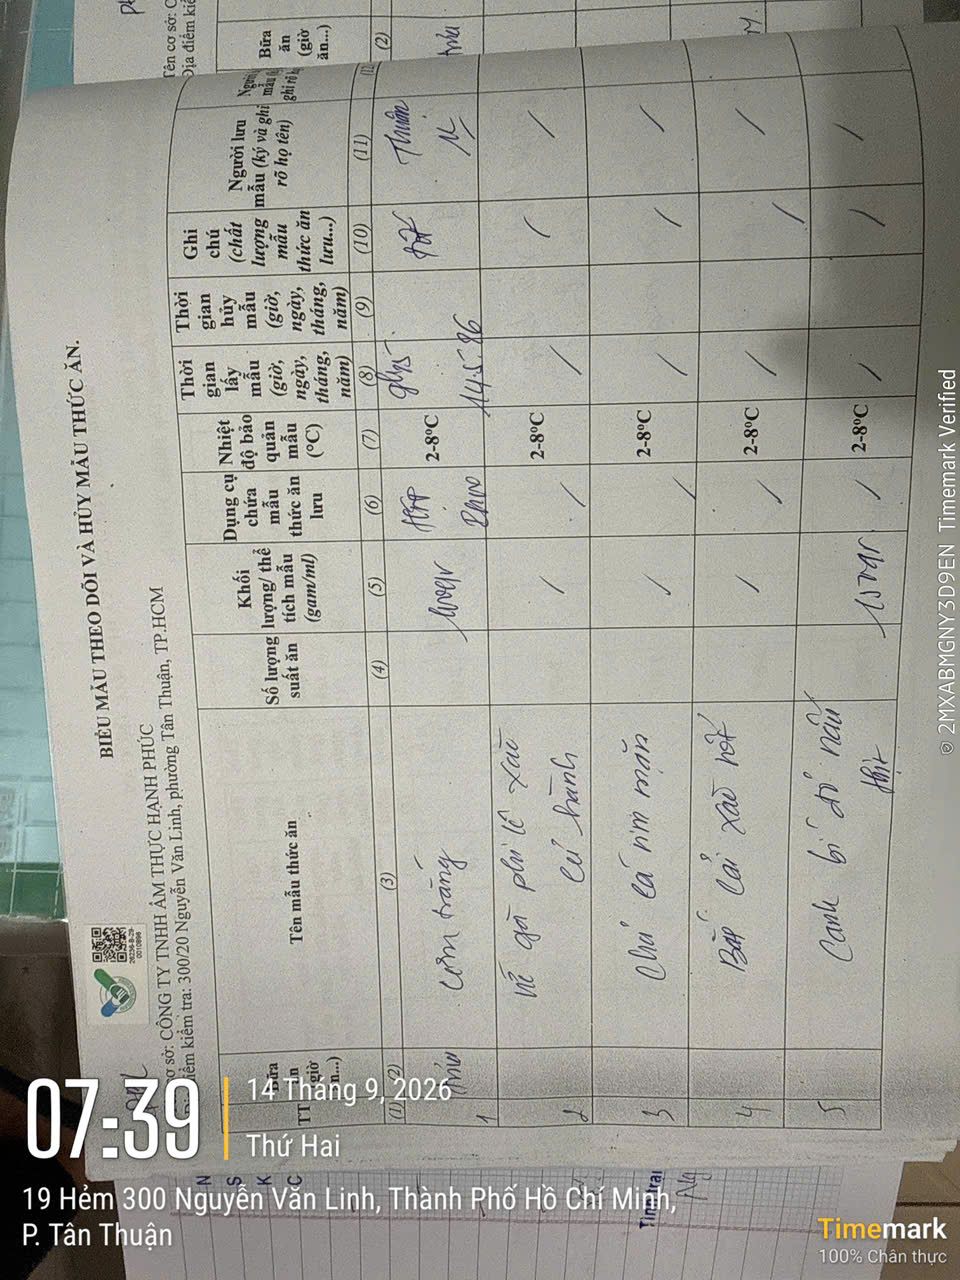 BIỂU MẪU THEO DÕI VÀ HỦY MẪU THỨC ĂN.
28236-B-29-
0010898
ơ sở: CÔNG TY TNHH ẨM THỰC HẠNH PHÚC
iểm kiểm tra: 300/20 Nguyễn Văn Linh, phường Tân Thuận, TP.HCM
TT
Bữa ăn giờ n...)
Tên mẫu thức ăn
Số lượng suất ăn
Khối lượng/ thể tích mẫu (gam/ml)
Dụng cụ chứa mẫu thức ăn lưu
Nhiệt độ bảo quản mẫu (°C)
Thời gian lấy mẫu (giờ, ngày, tháng, năm)
Thời gian hủy mẫu (giờ, ngày, tháng, năm)
Ghi chú (chất lượng mẫu thức ăn lưu...)
Người lưu mẫu (ký và ghi rõ họ tên)
(1) (2) (3) (4) (5) (6) (7) (8) (9) (10) (11)
1 trưa cơm trắng Hộp 2-8°C tốt Thuận
2 ức gà phi lê xào củ hành / / 2-8°C / / /
3 chả cá rim mặn / / 2-8°C / / /
4 Bắp cải xào / / 2-8°C / / /
5 Canh bí đỏ nấu thịt / 2-8°C / / /
Tên cơ sở: C
Địa điểm kiể
Bữa ăn (giờ ăn...)
(2)
trưa
N
S
K
C
Tình trạ
07:39
14 Tháng 9, 2026
Thứ Hai
19 Hẻm 300 Nguyễn Văn Linh, Thành Phố Hồ Chí Minh,
P. Tân Thuận
Timemark
100% Chân thực
2MXABMGNY3D9EN Timemark Verified